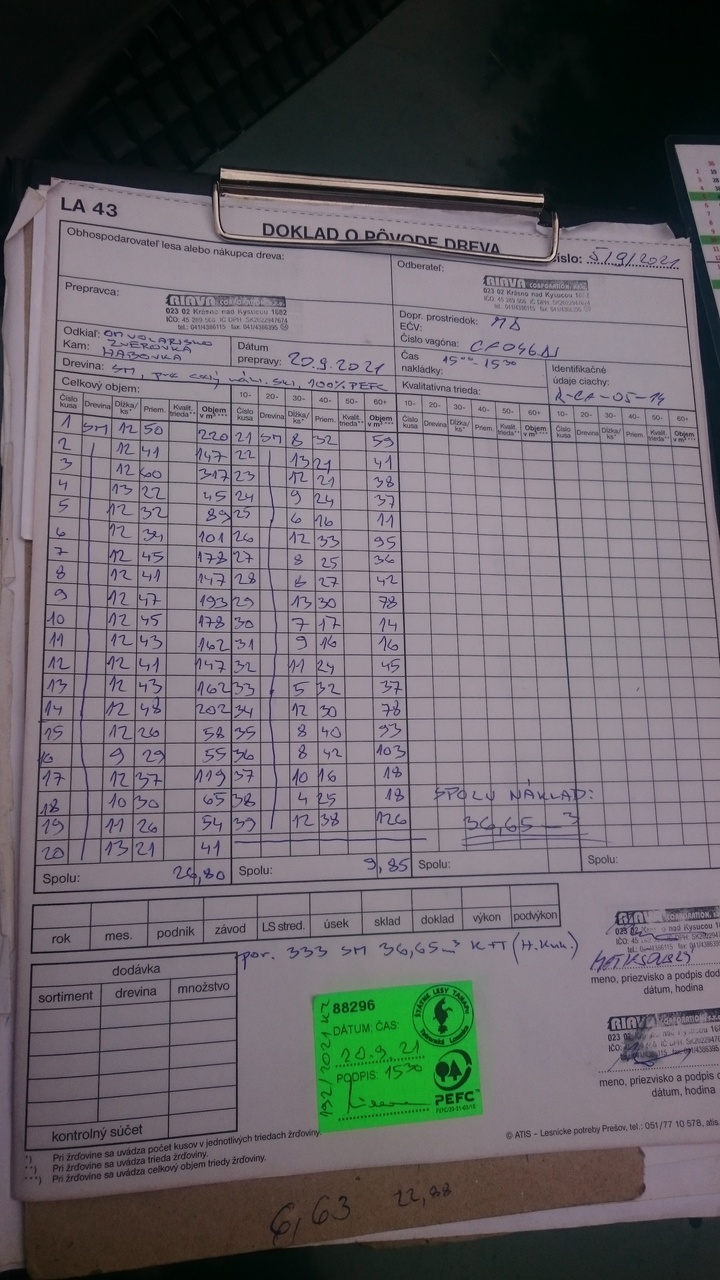 LA 43
DOKLAD O PÔVODE DREVA
číslo: 5/9/2021
Obhospodarovateľ lesa alebo nákupca dreva:
Odberateľ:
RIAVA CORPORATION, s.r.o.
023 02 Krásno nad Kysucou 1682
Prepravca:
RIAVA CORPORATION, s.r.o.
023 02 Krásno nad Kysucou 1682
IČO: 45 289 565 IČ DPH: SK2022947674
tel.: 041/4386115 fax: 041/4386395
Dopr. prostriedok: MD
EČV:
Číslo vagóna: CA046AI
Odkiaľ:
Kam: ZVEROVKA
HABOVKA
Dátum prepravy: 20.9.2021
Čas nakládky: 15⁰⁰ - 15³⁰
Identifikačné údaje ciachy:
R-CA-05-14
Drevina: SM, 100% PEFC
Celkový objem:
Kvalitatívna trieda:
10- 20- 30- 40- 50- 60+ 10- 20- 30- 40- 50- 60+
Číslo kusa Drevina Dĺžka/ks* Priem. Kvalit. trieda** Objem v m³ ***
1 SM 12 50 220 21 SM 8 32 59
2 12 41 147 22 13 21 41
3 12 60 317 23 12 21 38
4 13 22 45 24 9 24 37
5 12 32 89 25 6 16 11
6 12 34 101 26 12 33 95
7 12 45 178 27 8 25 36
8 12 41 147 28 8 27 42
9 12 47 193 29 13 30 78
10 12 45 178 30 7 17 14
11 12 43 162 31 9 16 16
12 12 41 147 32 11 24 45
13 12 43 162 33 5 32 37
14 12 48 202 34 12 30 78
15 12 26 58 35 8 40 93
16 9 29 55 36 8 42 103
17 12 37 119 37 10 16 18
18 10 30 65 38 4 25 18
19 11 26 54 39 12 38 126
20 13 21 41
SPOLU NÁKLAD:
36,65 m³
Spolu: 26,80 Spolu: 9,85 Spolu: Spolu:
rok mes. podnik závod LS stred. úsek sklad doklad výkon podvýkon
por. 333 SM 36,65 m³ KH (H.Kuk.)
dodávka
sortiment drevina množstvo
kontrolný súčet
88296
DÁTUM; ČAS:
20.9.21
PODPIS: 15³⁰
192/2021 KZ
ŠTÁTNE LESY TANAPu
Tatranská Lomnica
PEFC™
RIAVA CORPORATION s.r.o.
meno, priezvisko a podpis
dátum, hodina
RIAVA CORPORATION s.r.o.
meno, priezvisko a podpis
dátum, hodina
*) Pri žrďovine sa uvádza počet kusov v jednotlivých triedach žrďoviny.
**) Pri žrďovine sa uvádza trieda žrďoviny.
***) Pri žrďovine sa uvádza celkový objem triedy žrďoviny.
© ATIS – Lesnícke potreby Prešov, tel.: 051/77 10 578, atis.
6,63 22,88